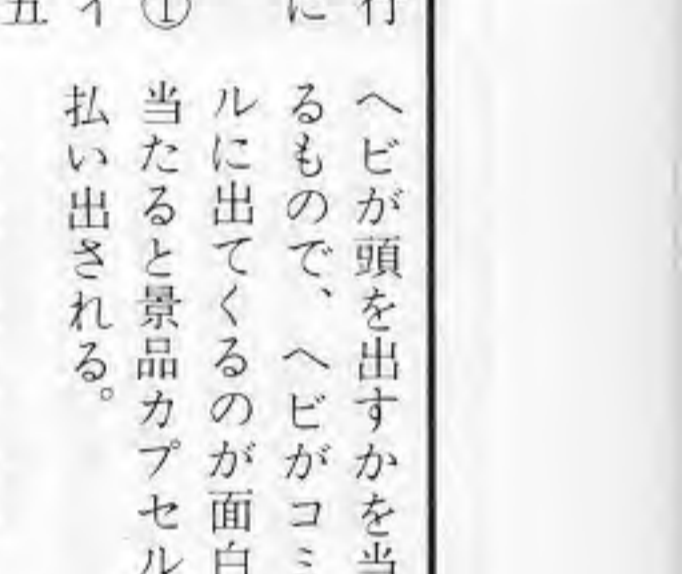 行
に
①
イ
五
ヘビが頭を出すかを当
るもので、ヘビがコミ
ルに出てくるのが面白
当たると景品カプセル
払い出される。